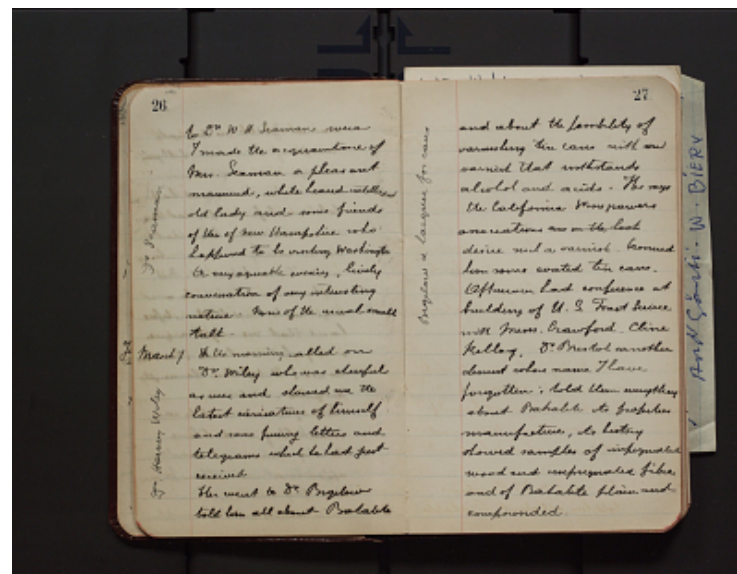 26
to Dr W. H. Seaman where
I made the acquaintance of
Mrs. Seaman a pleasant
mannered, white haired
old lady and some friends
of New Hampshire who
happened to be visiting Washington
A very agreeable evening, lively
conversation of very interesting
nature. None of the usual small
talk
March 7 In the morning called on
Dr. Wiley who was cheerful
as ever and showed me the
latest caricatures of himself
and some funny letters and
telegrams which he had just
received
Then went to Dr Bigelow
told him all about Bakalite
Dr Seaman
Dr Harvey Wiley
27
and about the possibility of
varnishing tin cans with our
varnish that withstands
alcohol and acids. He says
the California
are on the look
desire such a varnish.
him some coated tin cans.
Afternoon had conference at
building of U. S. Forest Service
with Messrs. Crawford. Cline
Kellog, Dr Bristol another
chemist whose name I have
forgotten; told them everything
about Bakalite its properties
manufacture, its history
showed samples of impregnated
wood and impregnated fibre
and of Bakalite plain and
compounded.
Bigelow & lacquer for cans
W. BIERY